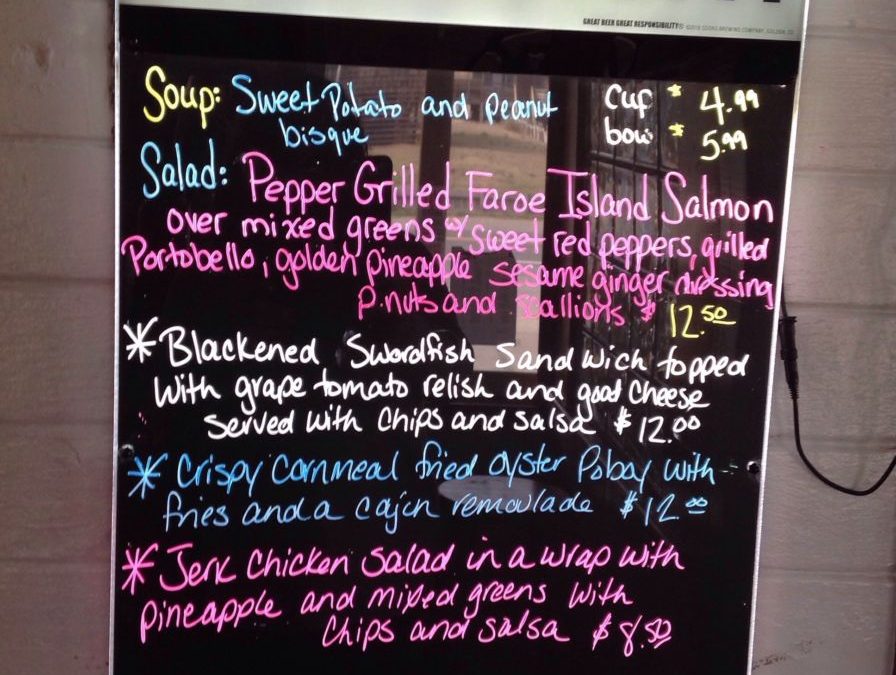 GREAT BEER GREAT RESPONSIBILITY® ©2010 COORS BREWING COMPANY, GOLDEN, CO
Soup: Sweet Potato and peanut cup $ 4.99
bisque bowl $ 5.99
Salad: Pepper Grilled Faroe Island Salmon
over mixed greens w/ sweet red peppers, grilled
Portobello, golden pineapple sesame ginger dressing
P.nuts and scallions $ 12.50
* Blackened Swordfish Sandwich topped
with grape tomato relish and goat cheese
served with chips and salsa $ 12.00
* Crispy Cornmeal fried oyster Poboy with
fries and a cajun remoulade $ 12.00
* Jerk chicken salad in a wrap with
pineapple and mixed greens with
chips and salsa $ 8.50